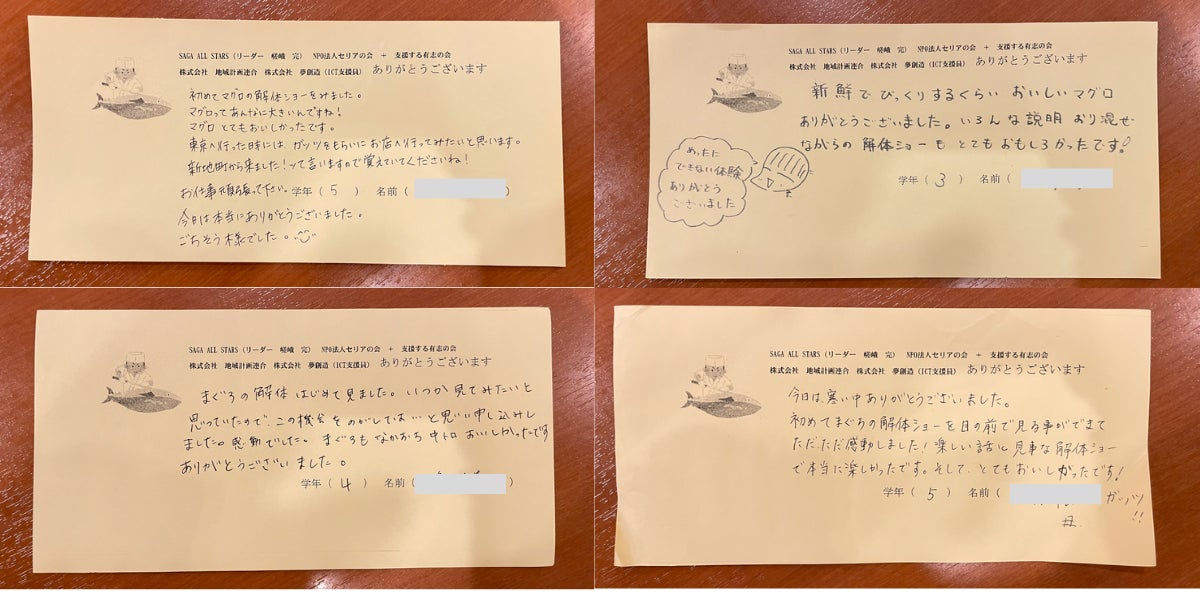 SAGA ALL STARS (リーダー 嵯峨 完) NPO法人セリアの会 + 支援する有志の会
株式会社 地域計画連合 株式会社 夢創造(ICT支援員) ありがとうございます
初めてマグロの解体ショーをみました。
マグロってあんなに大きいんですね!
マグロ とてもおいしかったです。
東京へ行った時には ガッツをもらいにお店へ行ってみたいと思います。
新地町から来ました!って言いますので覚えていてくださいね!
お仕事頑張って下さい。 学年( 5 ) 名前( )
今日は本当にありがとうございました。
ごちそう様でした。
SAGA ALL STARS (リーダー 嵯峨 完) NPO法人セリアの会 + 支援する有志の会
株式会社 地域計画連合 株式会社 夢創造(ICT支援員) ありがとうございます
新鮮で びっくりするくらい おいしいマグロ
ありがとうございました。いろんな説明 おり混ぜ
ながらの 解体ショーも とてもおもしろかったです!
めったに
できない体験
ありがとう
ございました
学年( 3 ) 名前(
SAGA ALL STARS (リーダー 嵯峨 完) NPO法人セリアの会 + 支援する有志の会
株式会社 地域計画連合 株式会社 夢創造(ICT支援員) ありがとうございます
まぐろの解体 はじめて見ました。いつか見てみたいと
思っていたので、この機会をのがしては…と思い申し込みし
ました。感動でした。まぐろも なかおち 中トロ おいしかったです
ありがとうございました。
学年( 4 ) 名前( )
SAGA ALL STARS (リーダー 嵯峨 完) NPO法人セリアの会 + 支援する有志の会
株式会社 地域計画連合 株式会社 夢創造(ICT支援員) ありがとうございます
今日は、寒い中ありがとうございました。
初めてまぐろの解体ショーを目の前で見る事ができて
ただただ感動しました!楽しい話と見事な解体ショー
で本当に楽しかったです。そして、とてもおいしかったです!
学年( 5 ) 名前( ガッツ!!
母.